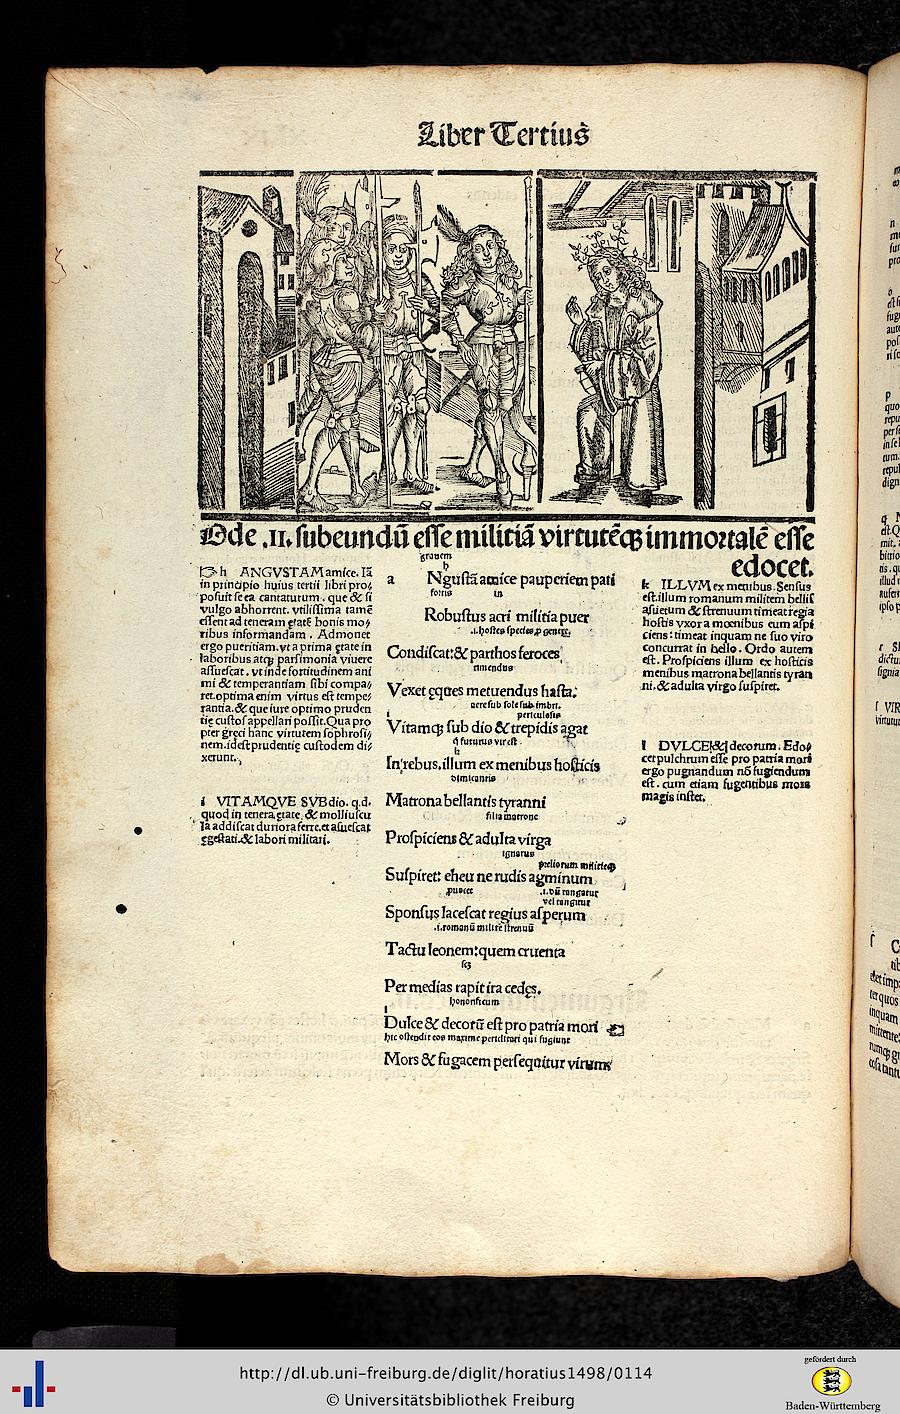 Liber Tertius
Ode .II. subeundū esse militiā virtutēq; immortalē esse
edocet.
h ANGVSTAM amice. Iā
in principio huius tertii libri pro/
posuit se ea cantaturum. quę & si
vulgo abhorrent. vtilissima tamē
essent ad teneram ętatē bonis mo/
ribus informandam. Admonet
ergo pueritiam. vt a prima ętate in
laboribus atq; parsimonia viuere
assuescat. vt inde fortitudinem ani
mi & temperantiam sibi compa/
ret. optima enim virtus est tempe/
rantia. & que iure optimo pruden
tię custos appellari possit. Qua pro
pter gręci hanc virtutem sophrosi/
nem. idest prudentię custodem di/
xerunt.
i VITAMQVE SVB dio. q.d.
quod in tenera ętate. & molliuscu
la addiscat duriora ferre. et asuescat
ęgestati. & labori militari.
grauem
h
a Ngustā amice pauperiem pati
fortis in
Robustus acri militia puer
.i. hostes species p genere.
Condiscat: & parthos feroces
timendus
Vexet eques metuendus hasta.
aere sub sole sub imbri.
i periculosis
Vitamq; sub dio & trepidis agat
q futurus vir est
k
In rebus. illum ex menibus hosticis
dimicantis
Matrona bellantis tyranni
filia matrone
Prospiciens & adulta virga
ignarus
preliorum militieq;
Suspiret: eheu ne rudis agminum
puocet .i. dū tangatur
vel tangitur
Sponsus lacescat regius asperum
.i. romanū militē strenuū
Tactu leonem: quem cruenta
scz
Per medias rapit ira cedes.
honorificum
l
Dulce & decorū est pro patria mori
hic ostendit eos maxime periclitari qui fugiunt
Mors & fugacem persequitur virum
k ILLVM ex menibus. Sensus
est. illum romanum militem bellis
asuetum & strenuum timeat regia
hostis vxor a mœnibus eum aspi
ciens: timeat inquam ne suo viro
concurrat in bello. Ordo autem
est. Prospiciens illum ex hosticis
menibus matrona bellantis tyran
ni. & adulta virgo suspiret.
l DVLCE [&] decorum. Edo/
cet pulchrum esse pro patria mori
ergo pugnandum nō fugiendum
est. cum etiam fugentibus mors
magis instet.
http://dl.ub.uni-freiburg.de/diglit/horatius1498/0114
© Universitätsbibliothek Freiburg
gefördert durch
Baden-Württemberg